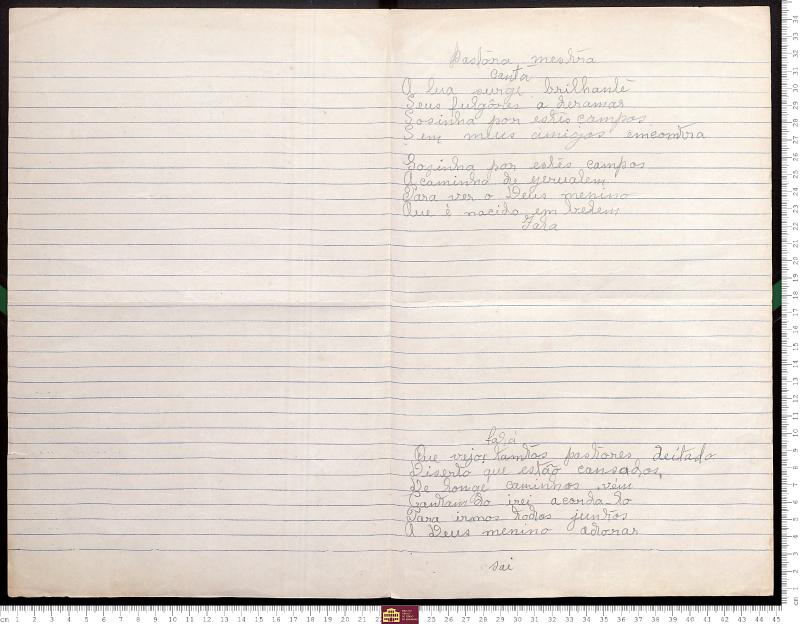 Pastôra mestra
canta
A lua surge brilhante
Seus fulgôres a deramar
Sosinha por estes campos
Sem meus amigos emcomtra
Sozinha por estês campos
A caminho de yerualem
Para ver o Deus menino
Que é nacido em belem
Fala
fala
Que vejo, tamtos pastores deitado
Diserto que estão cansados,
De longe caminhos vém
Cantamdo irei acorda-lo
Para irmos todos juntos
A Deus menino adorar
sai